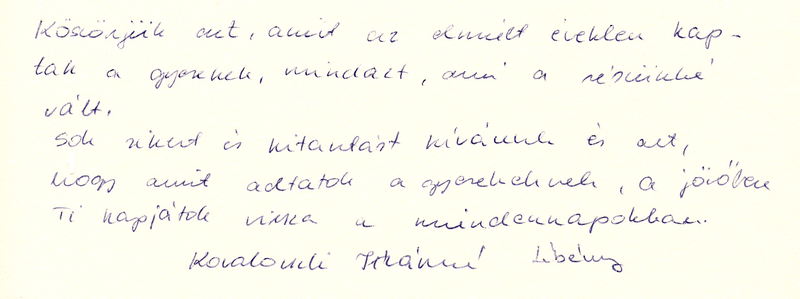 Köszönjük azt, amit az elmúlt években kap-
tak a gyerekek, mindazt, ami a részünkké
vált.
Sok sikert és kitartást kívánunk és azt,
hogy amit adtatok a gyerekeknek, a jövőben
Ti kapjátok vissza a mindennapokban.
Istvánné Lébény